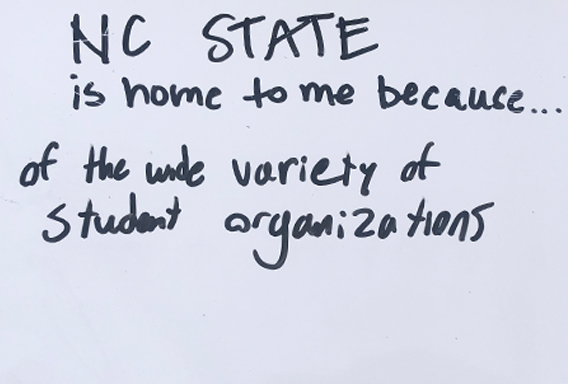 NC STATE
is home to me because...
of the wide variety of
student organizations